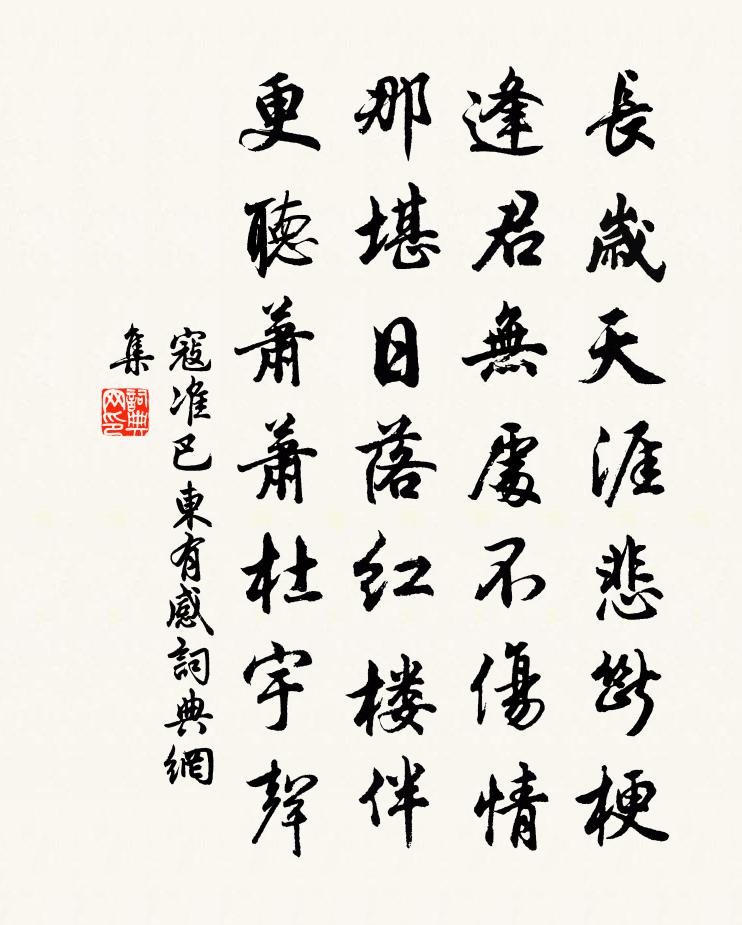 長歲天涯悲斷梗
逢君無處不傷情
那堪日落红楼伴
更聽蕭蕭杜宇聲
寇准巴東有感詞典網
集
詞典网印